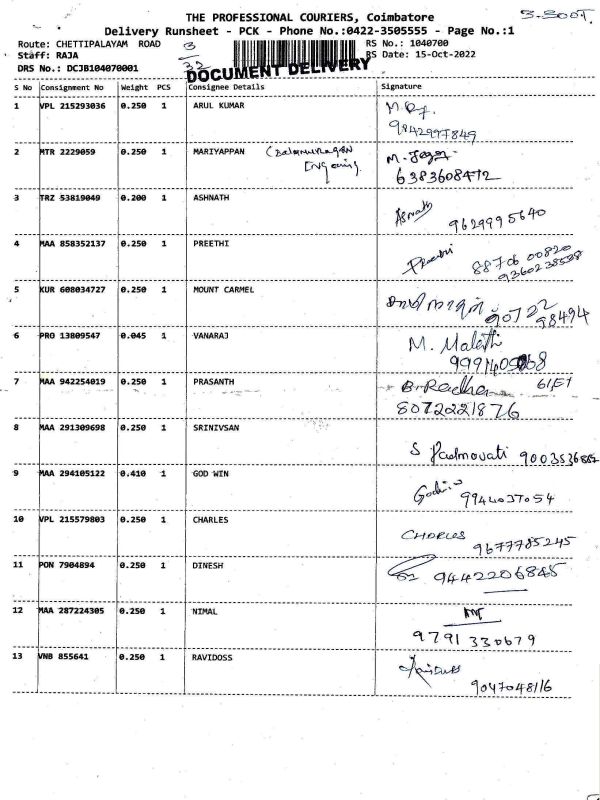 THE PROFESSIONAL COURIERS, Coimbatore
Delivery Runsheet - PCK - Phone No.:0422-3505555 - Page No.:1
Route: CHETTIPALAYAM ROAD
RS No.: 1040700
Staff: RAJA
RS Date: 15-Oct-2022
DRS No.: DCJB104070001
DOCUMENT DELIVERY
S No Consignment No Weight PCS Consignee Details Signature
1 VPL 215293036 0.250 1 ARUL KUMAR
9842997849
2 MTR 2229059 0.250 1 MARIYAPPAN
6383608472
3 TRZ 53819049 0.200 1 ASHNATH Asnath
9629995640
4 MAA 858352137 0.250 1 PREETHI Preethi
88706 00820
9360238508
5 KUR 608034727 0.250 1 MOUNT CARMEL
98494
6 PRO 13809547 0.045 1 VANARAJ M. Malathi
7 MAA 942254019 0.250 1 PRASANTH B. Radha
8072221876
8 MAA 291309698 0.250 1 SRINIVSAN
S Padmovati
9 MAA 294105122 0.410 1 GOD WIN Godwin
9944037054
10 VPL 215579803 0.250 1 CHARLES CHARLES
9677785245
11 PON 7904894 0.250 1 DINESH 9442206845
12 MAA 287224305 0.250 1 NIMAL
9791330679
13 VNB 855641 0.250 1 RAVIDOSS
9047048116